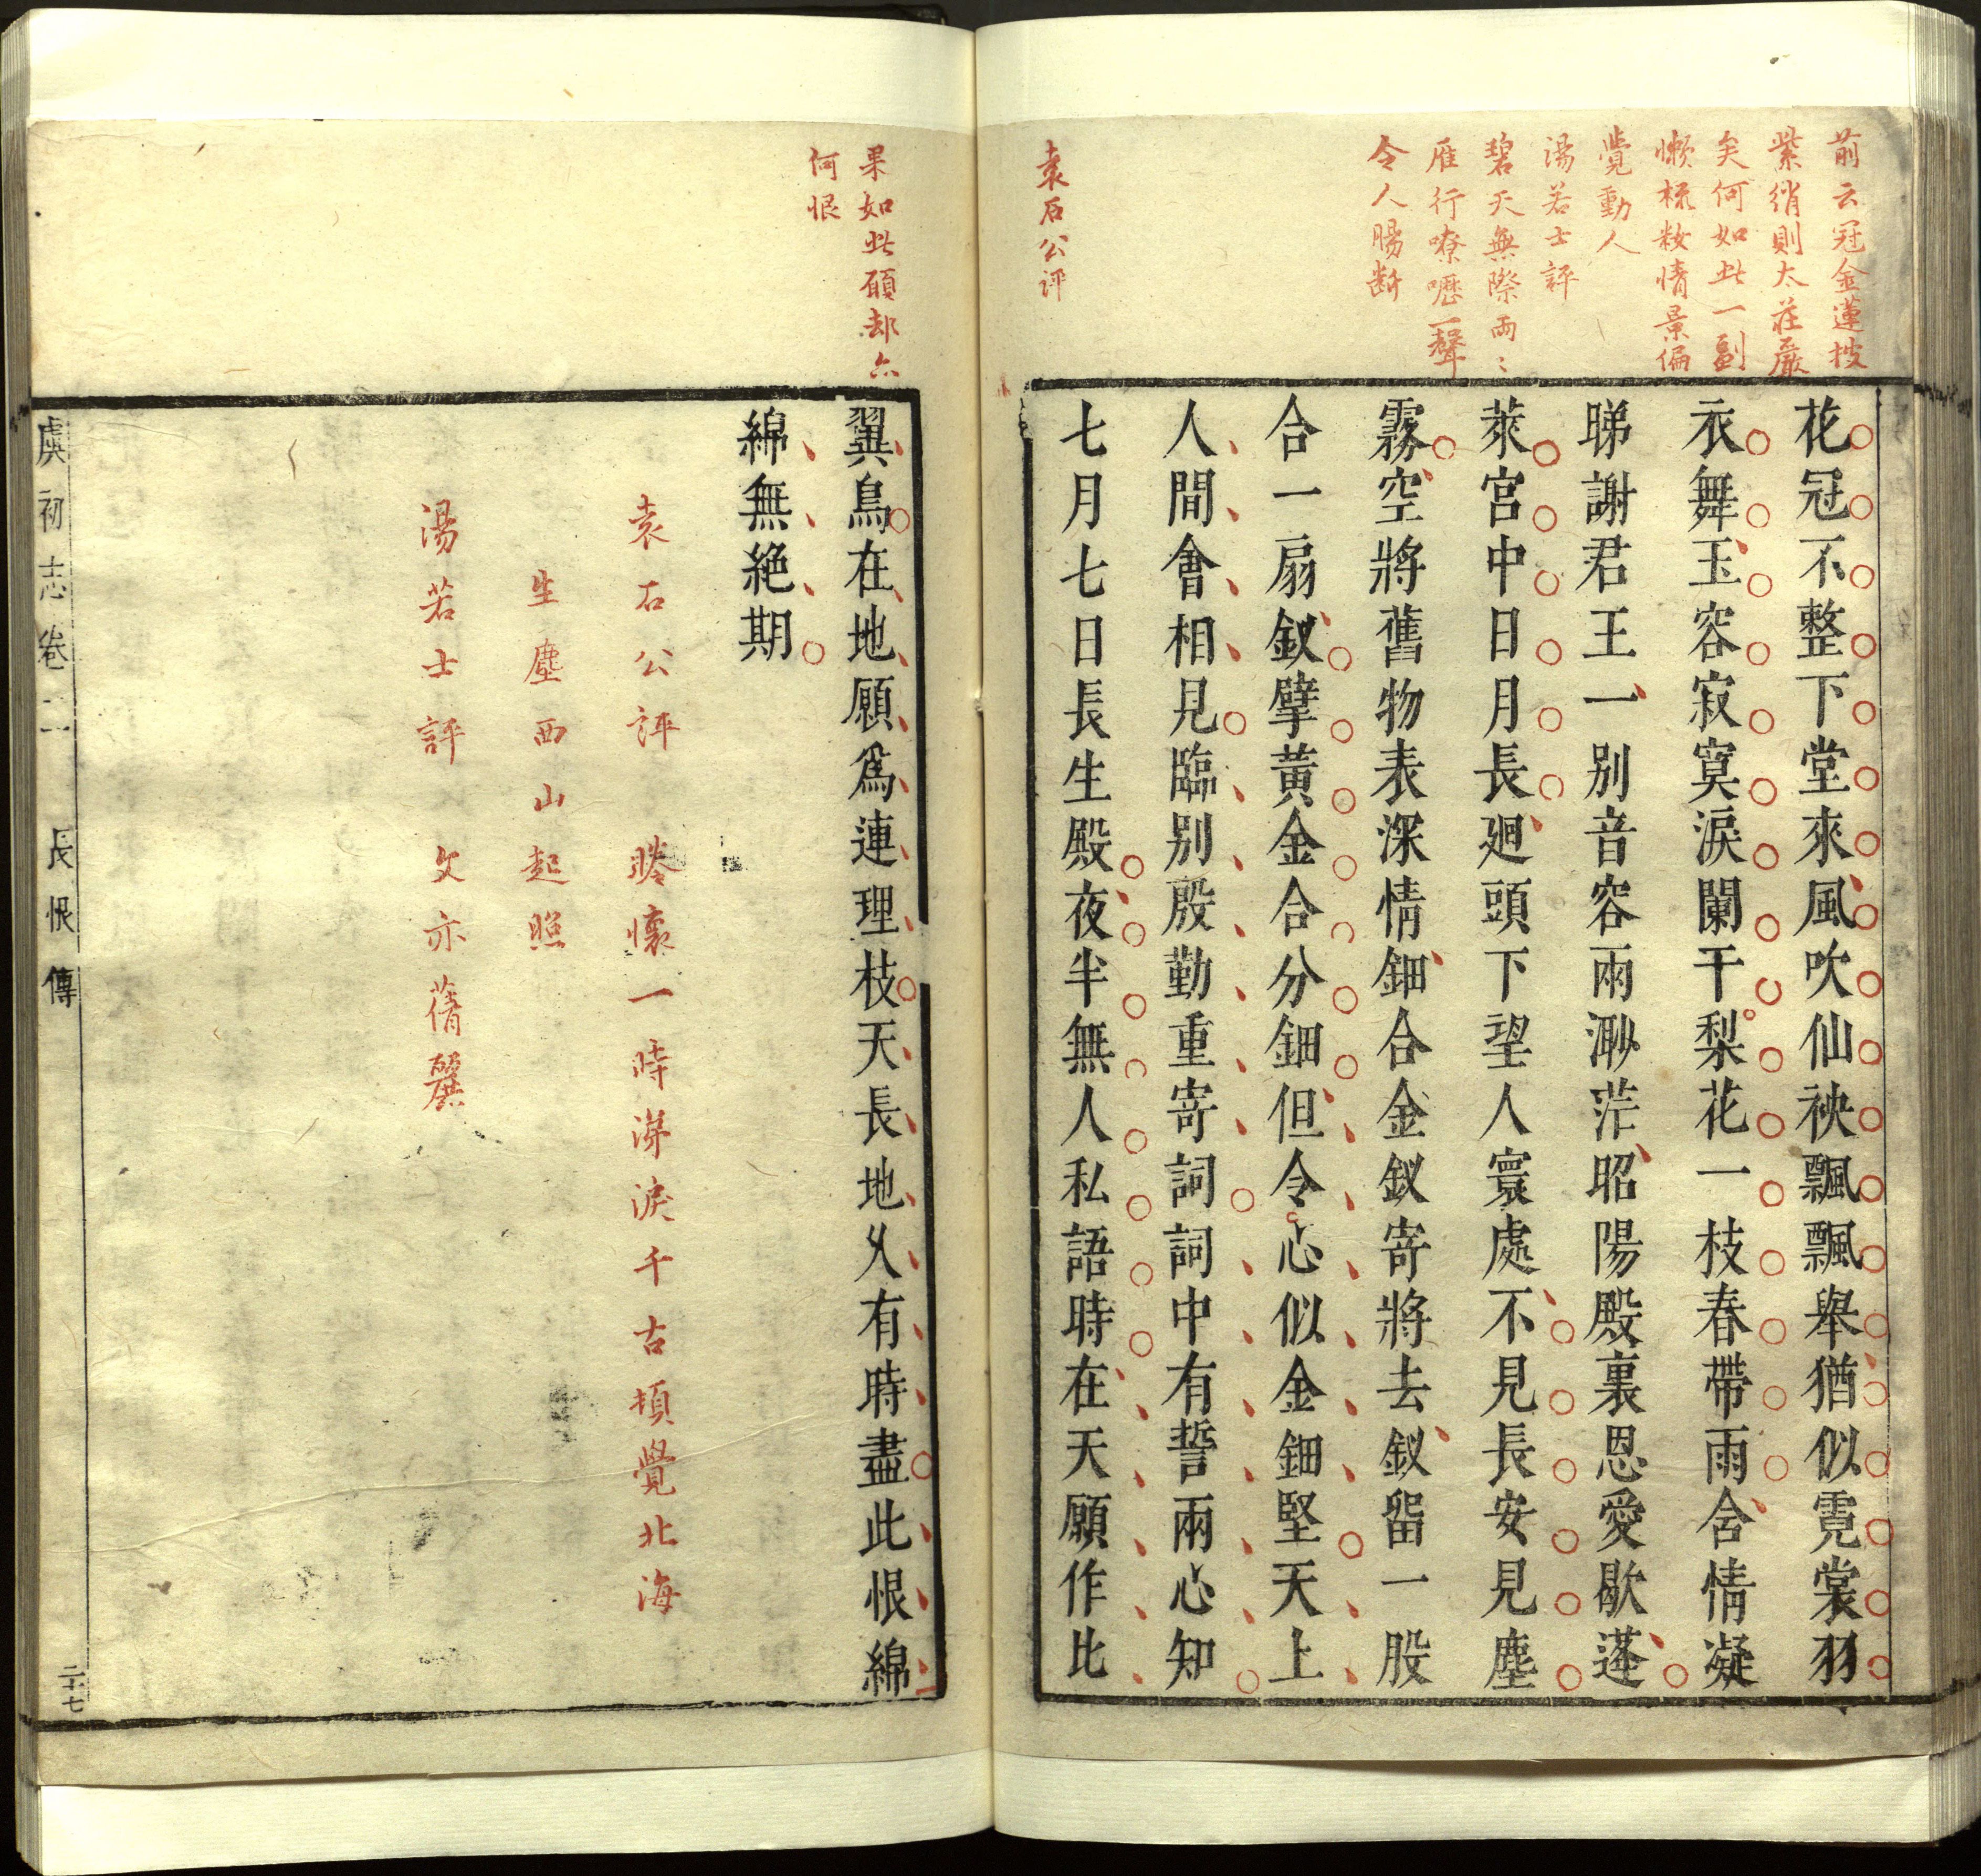 前云冠金蓮披
紫綃則太莊嚴
矣何如此一副
懶梳籹情景偏
覺動人
湯若士評
碧天無際兩〻
雁行嘹嚦一聲
令人腸斷
袁石公評
花冠不整下堂來風吹仙袂飄飄舉猶似霓裳羽
衣舞玉容寂寞淚闌干梨花一枝春帶雨含情凝
睇謝君王一別音容兩渺茫昭陽殿裏恩愛歇蓬
萊宮中日月長廻頭下望人寰處不見長安見塵
霧空將舊物表深情鈿合金釵寄將去釵畱一股
合一扇釵擘黃金合分鈿但令心似金鈿堅天上
人間會相見臨別殷勤重寄詞詞中有誓兩心知
七月七日長生殿夜半無人私語時在天願作比
果如此願却亦
何恨
翼鳥在地願爲連理枝天長地久有時盡此恨綿
綿無絕期
袁石公評 勝懷一時涕淚千古頓覺北海
生塵西山起照
湯若士評 文亦蒨麗
虞初志卷二 長恨傳 二十七